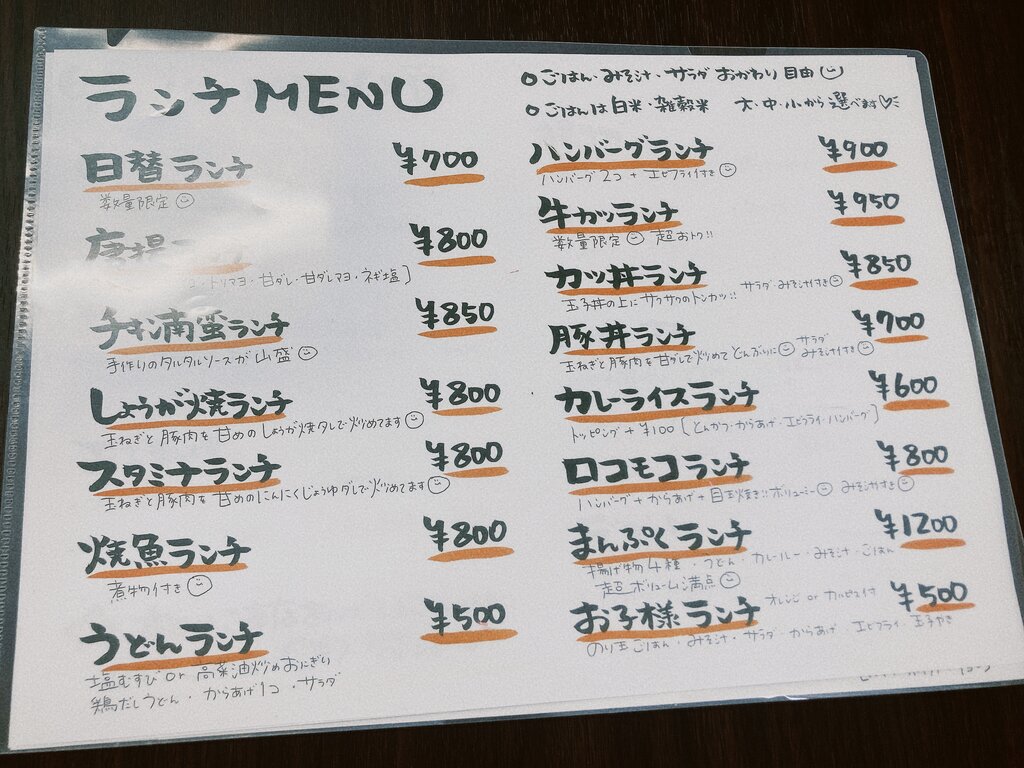 ランチMENU
○ごはん・みそ汁・サラダ おかわり自由
○ごはんは白米・雑穀米 大・中・小から選べます♡
日替ランチ ¥700
数量限定
唐揚 ¥800
甘ダレ・甘ダレマヨ・ネギ塩]
チキン南蛮ランチ ¥850
手作りのタルタルソースが山盛
しょうが焼ランチ ¥800
玉ねぎと豚肉を甘めのしょうが焼タレで炒めてます
スタミナランチ ¥800
玉ねぎと豚肉を甘めのにんにくじょうゆダレで炒めてます
焼魚ランチ ¥800
煮物付き
うどんランチ ¥500
塩むすび or 高菜油炒めおにぎり
鶏だしうどん・からあげ1コ・サラダ
ハンバーグランチ ¥900
ハンバーグ2コ+エビフライ付き
牛カツランチ ¥950
数量限定 超おトク!!
カツ丼ランチ ¥850
玉子丼の上にサクサクのトンカツ!! サラダ・みそ汁付き
豚丼ランチ ¥700
玉ねぎと豚肉を甘ダレで炒めてどんぶりに サラダ みそ汁付き
カレーライスランチ ¥600
トッピング+¥100[とんかつ・からあげ・エビフライ・ハンバーグ]
ロコモコランチ ¥800
ハンバーグ+からあげ+目玉焼き!!ボリューミー みそ汁付き
まんぷくランチ ¥1200
揚げ物4種・うどん・カレールー・みそ汁・ごはん
超ボリューム満点
お子様ランチ オレンジ or カルピス付 ¥500
のり玉ごはん・みそ汁・サラダ からあげ エビフライ 玉子やき